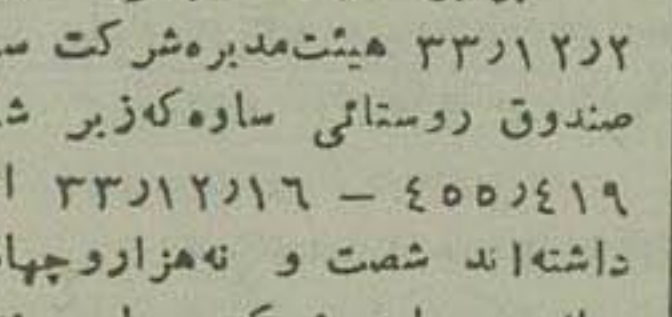 ۳۳ر۱۲ر۲ هیئت‌مدیره‌شرکت
صندوق روستائی ساوه که زیر
۴۵۵ر۴۱۹ – ۳۳ر۱۲ر۱۶
داشته‌اند شصت و نه‌هزاروچها